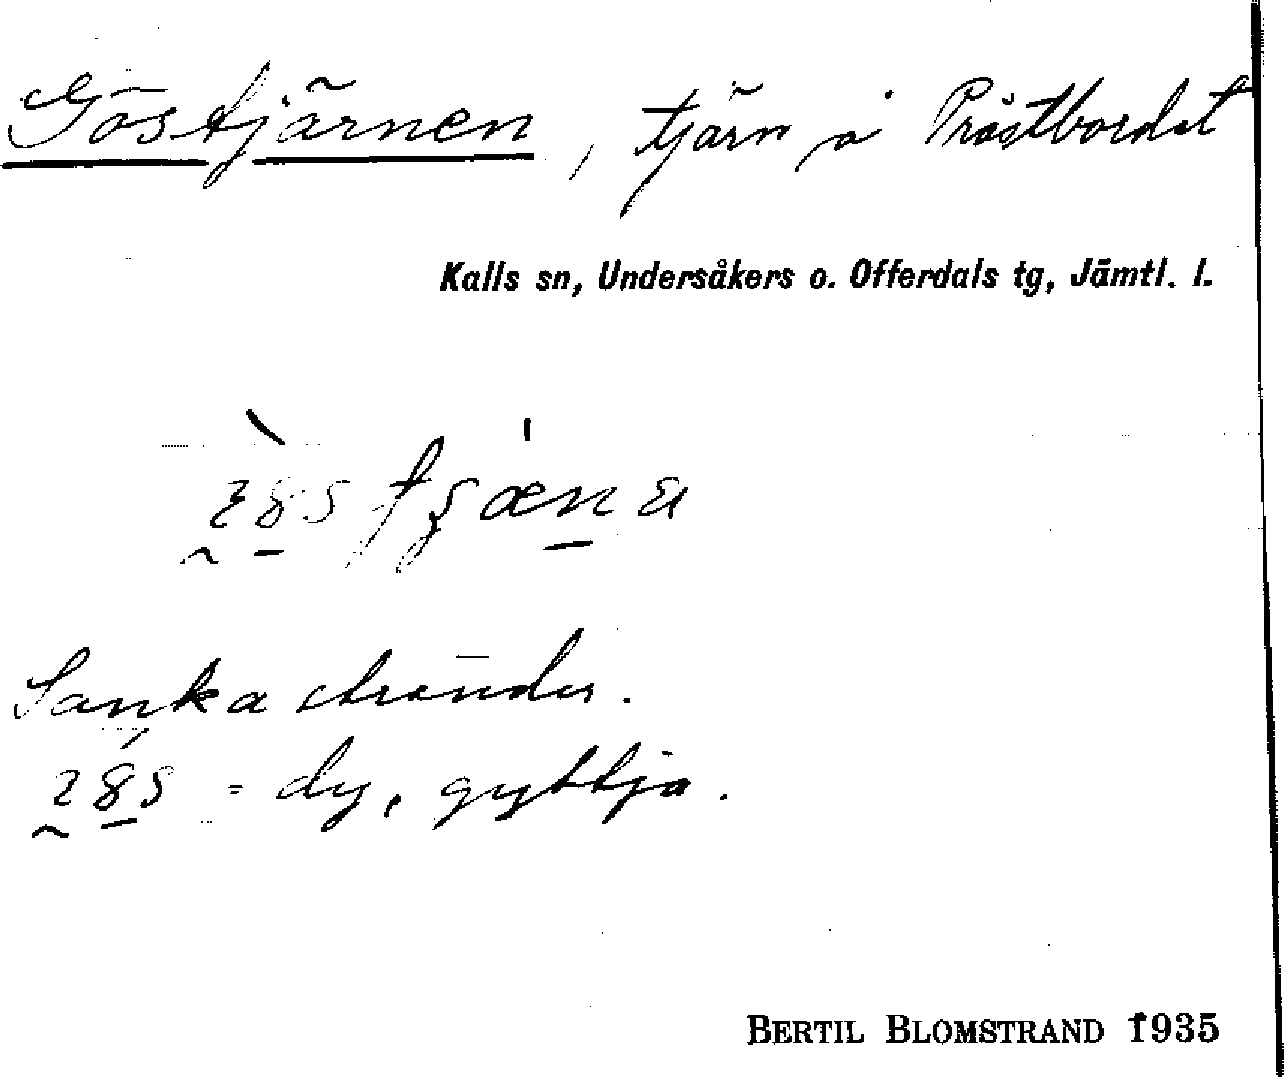 Göstjärnen, tjärn å Prästbordet
Kalls sn, Undersåkers o. Offerdals tg, Jämtl. l.
Sanka stränder.
= dy, gyttja.
BERTIL BLOMSTRAND 1935